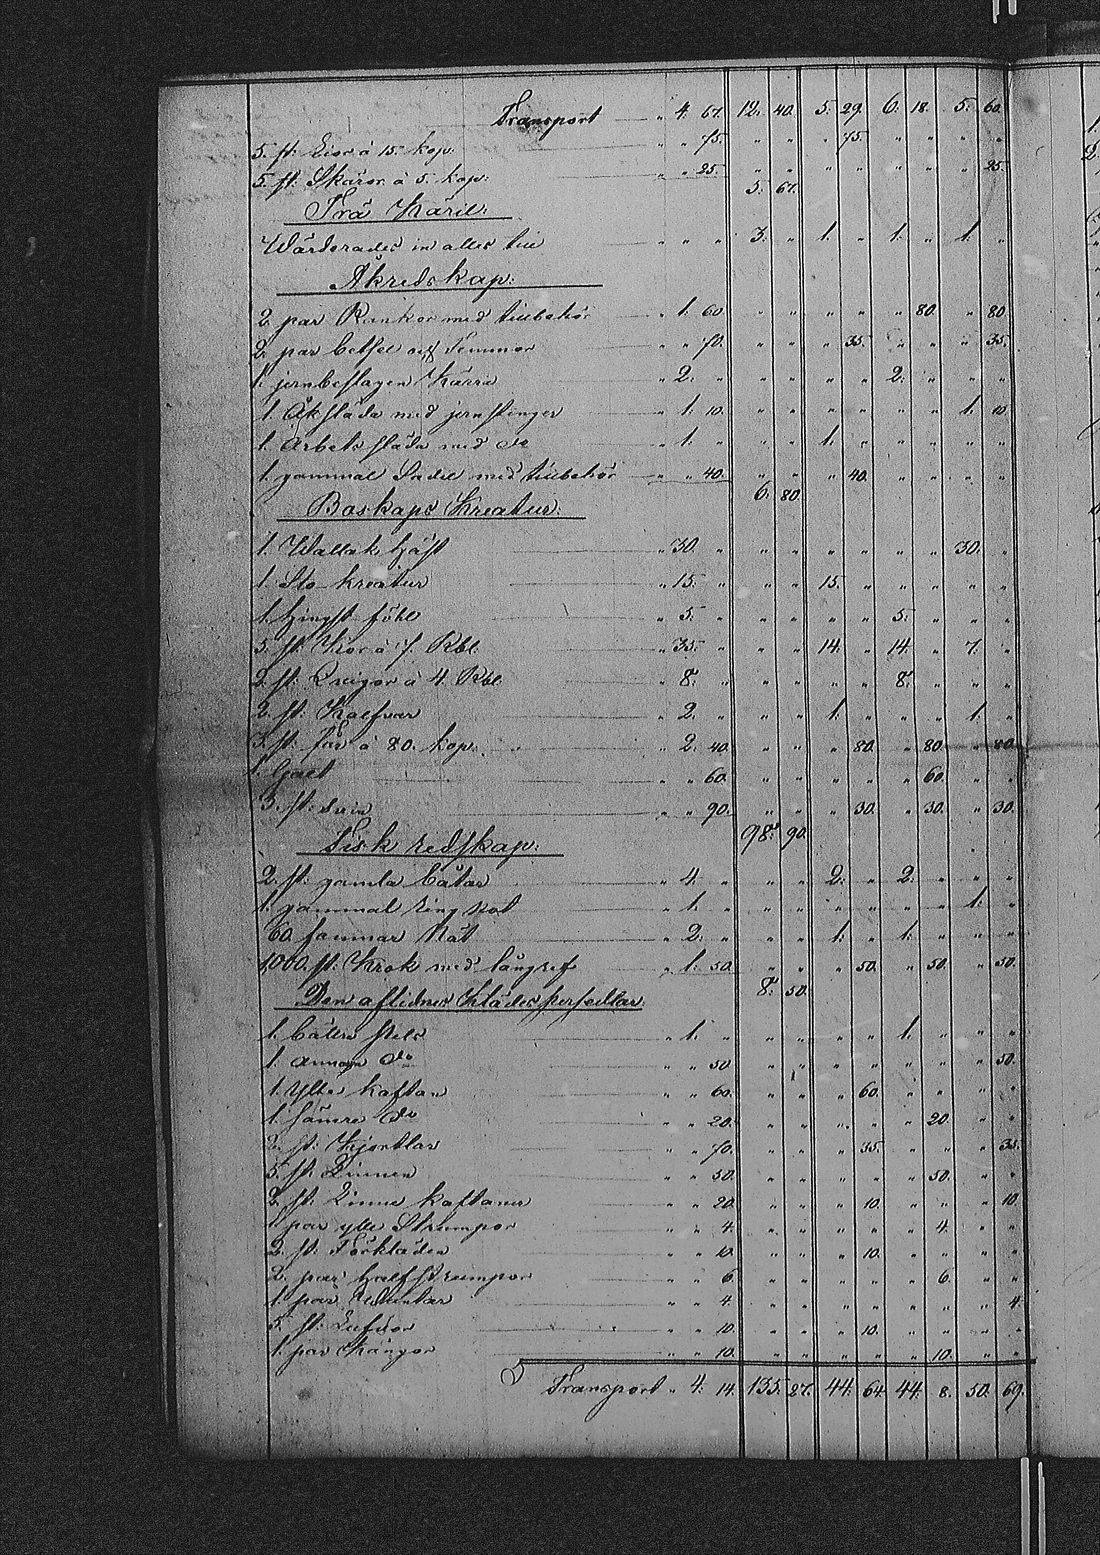 Transport " 4. 67. 12. 40. 5. 29. 6. 18. 5. 60.
5. st: Liar à 15. kop. " " 75. " " " 75. " " " "
5. st: Skäror à 5. kop: " " 25. " " " " " " " 25.
5. 67.
Trä Käril:
Wärderades in alles till " " " 3. " 1. " 1. " 1. "
Åkredskap:
2. par Rankor med tillbehör " 1. 60. " " " " " 80. " 80.
2. par betsel och Tömmar " " 70. " " " 35. " " " 35.
1. jernbeslagen Kärra " 2. " " " " " 2. " " "
1. Åksläda med jernstänger " 1. 10. " " " " " " 1. 10.
1. Arbets släda med do " 1. " " " 1. " " " " "
1. gammal Sadel med tillbehör " " 40. " " " 40. " " " "
6. 80.
Boskaps Kreatur:
1. Wallak häst " 30. " " " " " " " 30. "
1. Sto kreatur " 15. " " " 15. " " " " "
1. hingst föhl " 5. " " " " " 5. " " "
5. st: Kor à 7. Rbl. " 35. " " " 14. " 14. " 7. "
2. st: Qvigor à 4. Rbl. " 8. " " " " " 8. " " "
2. st: Kalfvar " 2. " " " 1. " " " 1. "
3. st: får à 80. kop. " 2. 40. " " " 80. " 80. " 80.
1. Galt " " 60. " " " " " 60. " "
3. st: svin " " 90. " " " 30. " 30. " 30.
98. 90.
Fisk redskap:
2. st: gamla båtar " 4. " " " 2. " 2. " " "
1. gammal ring not " 1. " " " " " " " 1. "
60. famnar Nät " 2. " " " 1. " 1. " " "
1,000. st: Krok med långref " 1. 50. " " " 50. " 50. " 50.
8. 50.
Den aflidnes Klädes persedlar:
1. bättre pels " 1. " " " " " 1. " " "
1. annan do " " 50 " " " " " " " 50.
1. Ylle kaftan " " 60. " " " 60. " " " "
1. sämre do " " 20. " " " " " 20. " "
2. st: Kjortlar " " 70. " " " 35. " " " 35.
5. st: Linnen " " 50. " " " " " 50. " "
2. st: Linne kaftaner " " 20. " " " 10. " " " 10.
1. par ylle Strumpor " " 4. " " " " " 4. " "
2. st: Förkläden " " 10. " " " 10. " " " "
2. par halfstrumpor " " 6. " " " " " 6. " "
1. par " " 4. " " " " " " " 4.
5. st: " " 10. " " " 10. " " " "
1. par Kängor " " 10. " " " " " 10. " "
Transport " 4. 14. 135. 27. 44. 64. 44. 8. 50. 69.